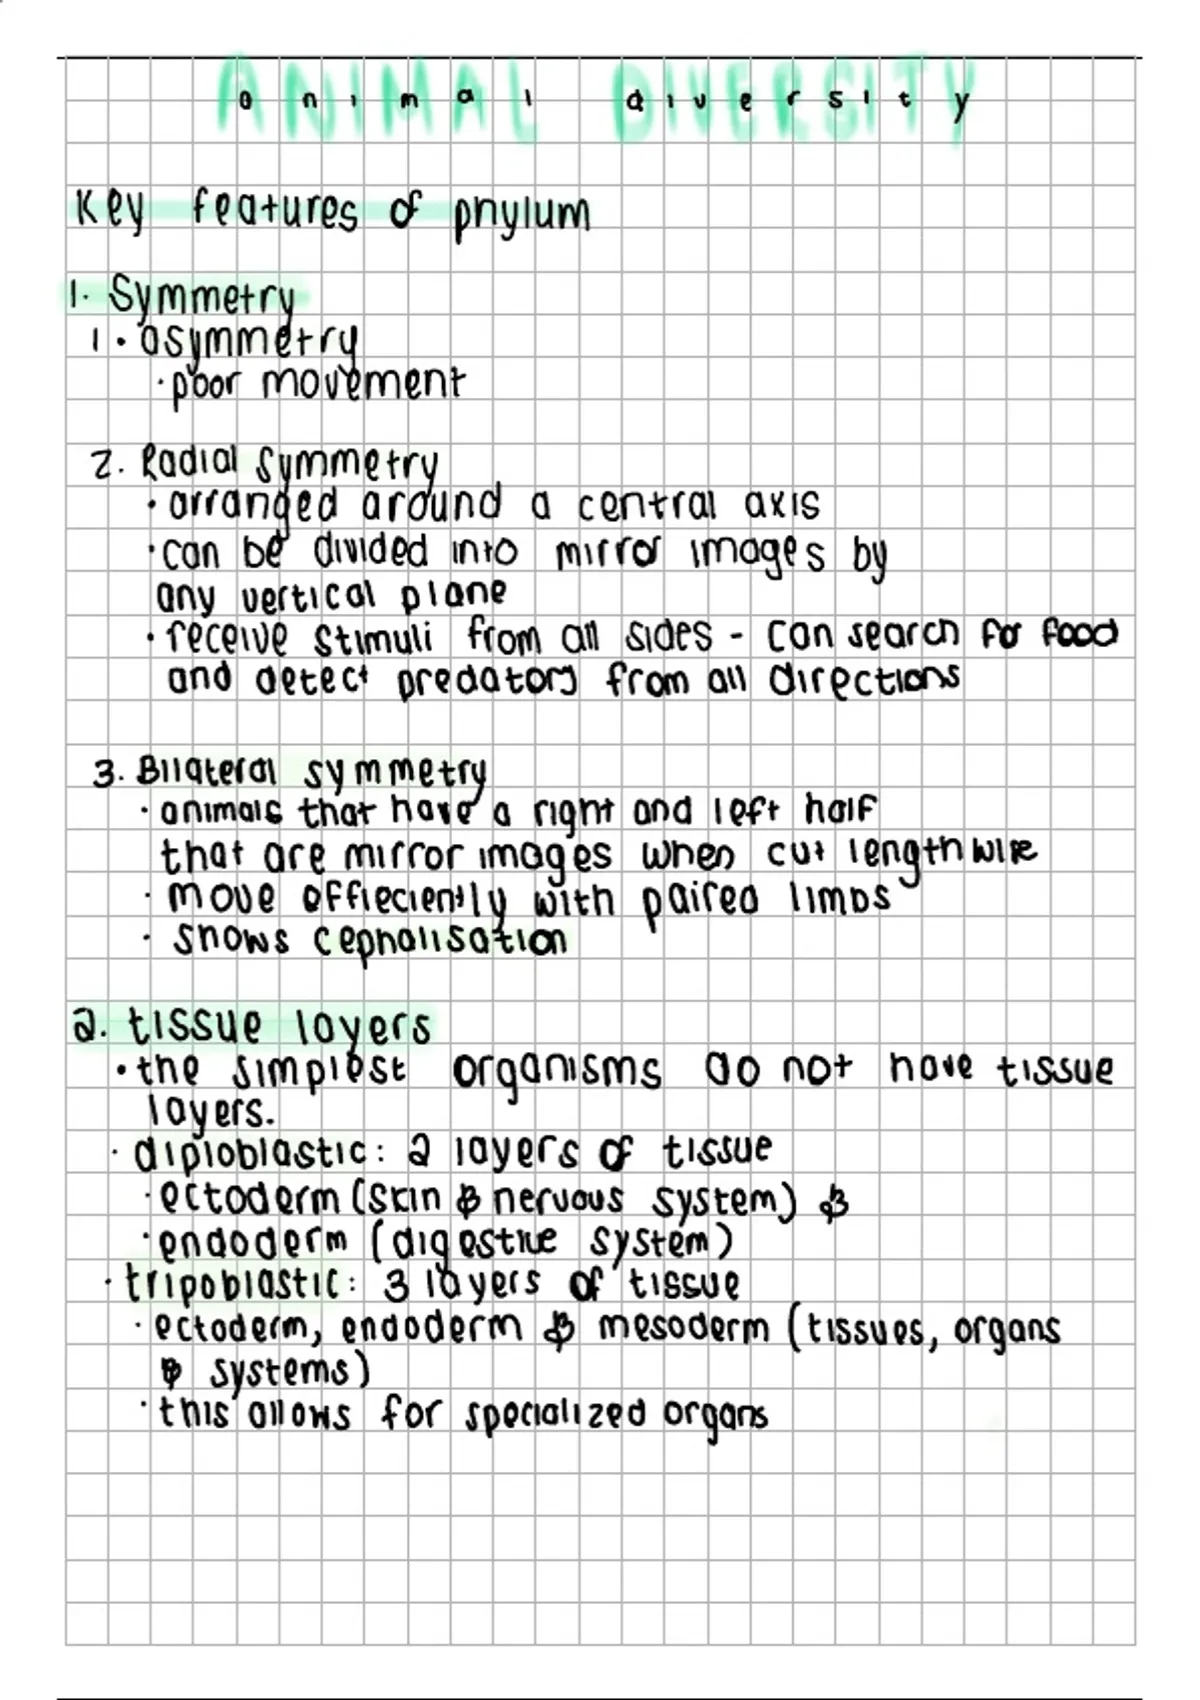 ANIMAL DIVERSITY
animal diversity
Key features of phylum
1. Symmetry
1. asymmetry
· poor movement
2. Radial symmetry
· arranged around a central axis
· can be divided into mirror images by
any vertical plane
· receive stimuli from all sides - can search for food
and detect predators from all directions
3. Bilateral symmetry
· animals that have a right and left half
that are mirror images when cut lengthwise
· move effieciently with paired limbs
· shows cephalisation
2. tissue layers
· the simplest organisms do not have tissue
layers.
· diploblastic: 2 layers of tissue
· ectoderm (skin & nervous system) &
· endoderm (digestive system)
· tripoblastic: 3 layers of tissue
· ectoderm, endoderm & mesoderm (tissues, organs
& systems)
· this allows for specialized organs